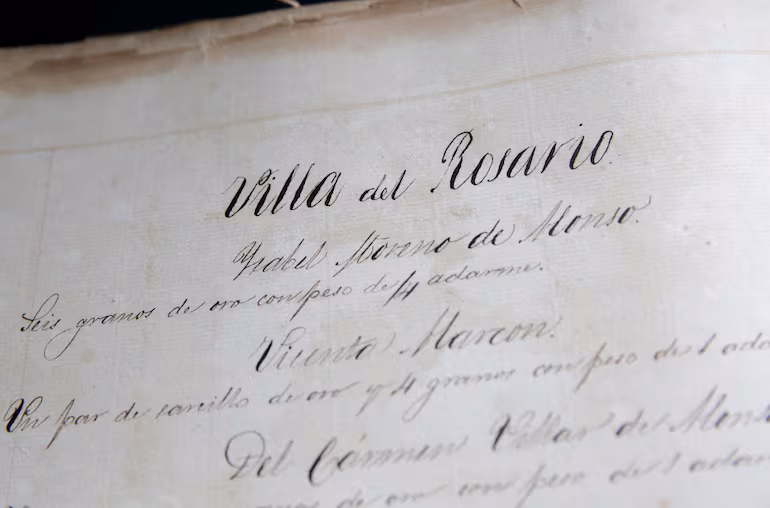 Villa del Rosario.
Ysabel Moreno de Alonso.
Seis granos de oro con peso de 1/4 adarme.
Vicenta Marcon.
Un par de sarcillo de oro y 4 granos con peso de 1
Del Cármen Villar de
de oro con peso de 1